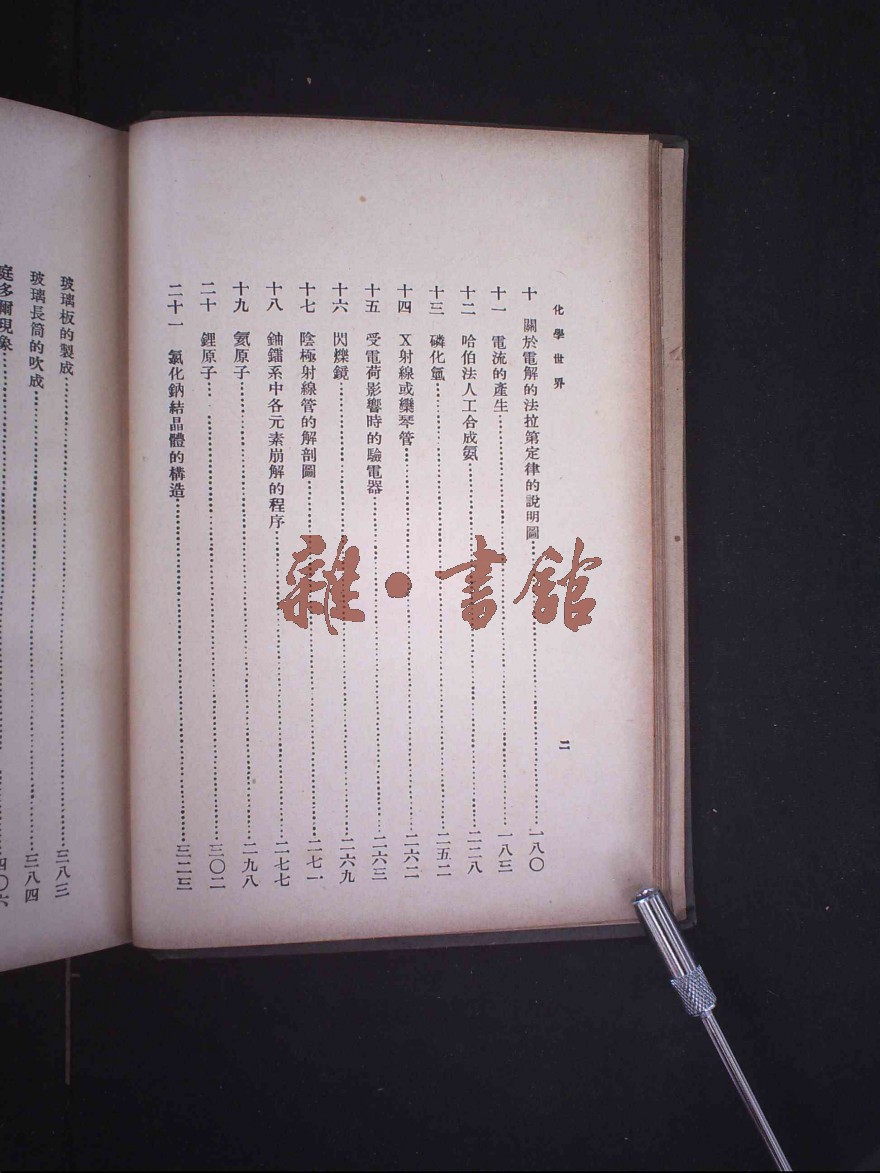 化學世界
二
十 關於電解的法拉第定律的說明圖……一八〇
十一 電流的產生……一八三
十二 哈伯法人工合成氨……二二八
十三 磷化氫……二五二
十四 X射線或欒琴管……二六二
十五 受電荷影響時的驗電器……二六三
十六 閃爍鏡……二六九
十七 陰極射線管的解剖圖……二七一
十八 鈾鐳系中各元素崩解的程序……二七七
十九 氦原子……二九八
二十 鋰原子……三〇二
二十一 氯化鈉結晶體的構造……三二三
玻璃板的製成……三八三
玻璃長筒的吹成……三八四
庭多爾現象……四〇六
雜·書館